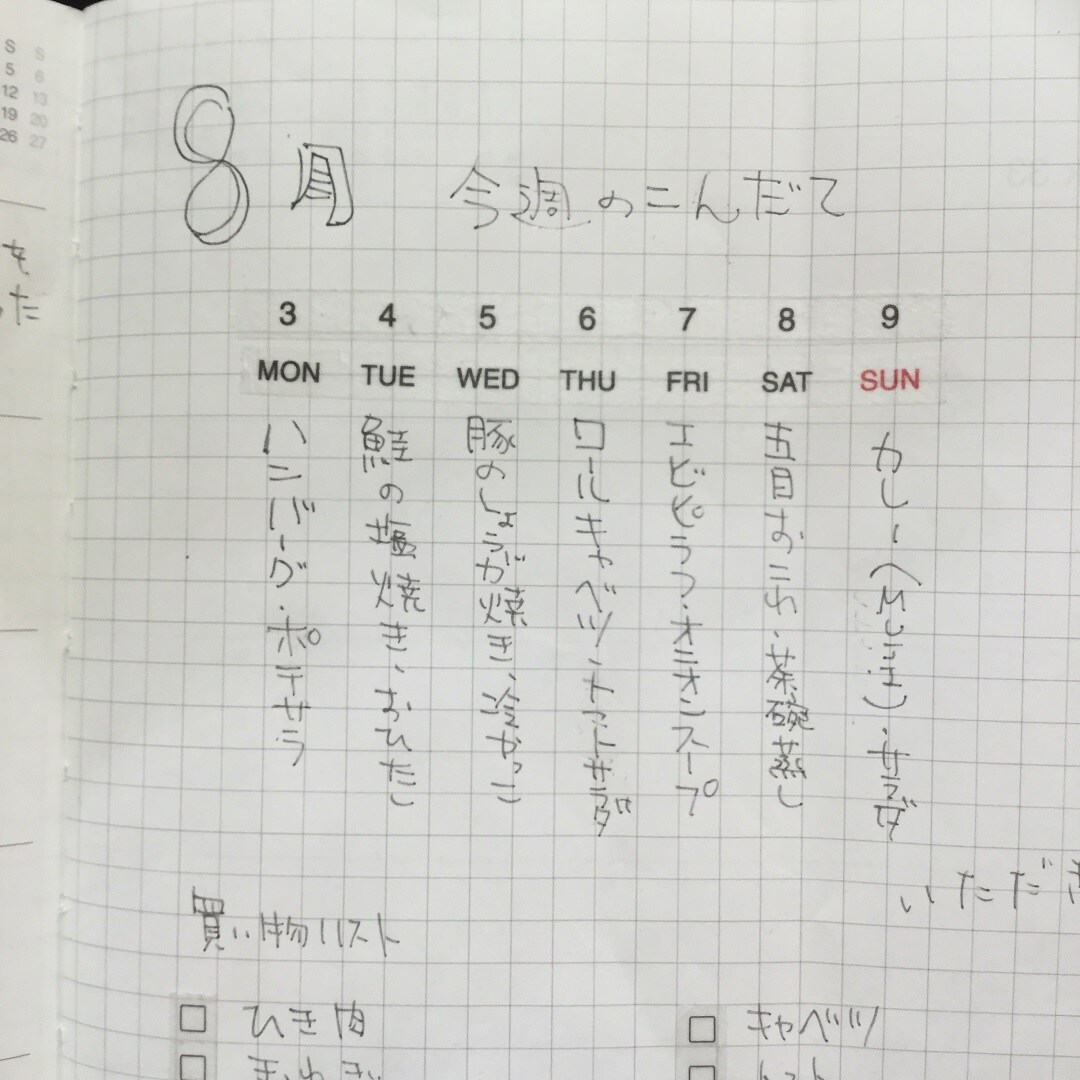 S S
5 6
12 13
19 20
26 27
を
った
8月 今週のこんだて
3 4 5 6 7 8 9
MON TUE WED THU FRI SAT SUN
ハンバーグ・ポテサラ
鮭の塩焼き、おひたし
豚のしょうが焼き、冷やっこ
ロールキャベツ、トマトサラダ
エビピラフ・オニオンスープ
五目おこわ・茶碗蒸し
カレー(ひき)・サラダ
いただき
買い物リスト
ひき肉
キャベツ